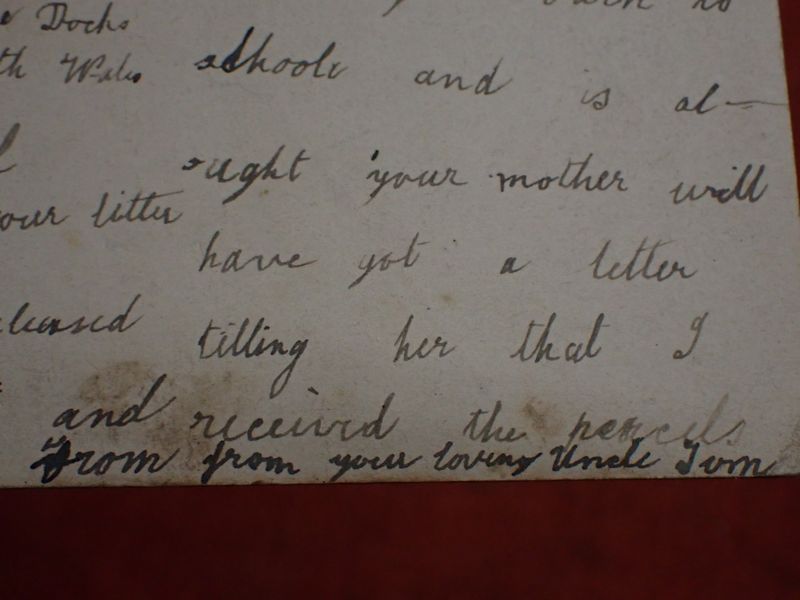 Docks
back to
Wales schoole and is al-
ought your mother will
your litter have got a letter
tilling her that I
and received the percels
From from your loving Uncle Tom